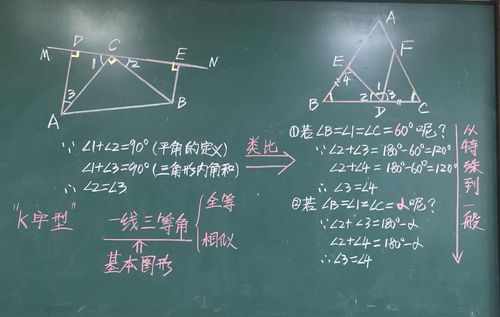 M D C E N
1 2
3
A B
A
E F
4 1
B 2 3 C
D
∵ ∠1+∠2=90° (平角的定义)
∠1+∠3=90° (三角形内角和)
∴ ∠2=∠3
类比
①若∠B=∠1=∠C=60°呢?
∵∠2+∠3=180°-60°=120°
∠2+∠4=180°-60°=120°
∴∠3=∠4
②若∠B=∠1=∠C=α呢?
∵∠2+∠3=180°-α
∠2+∠4=180°-α
∴∠3=∠4
从特殊到一般
"K字型"
一线三等角
全等
相似
基本图形